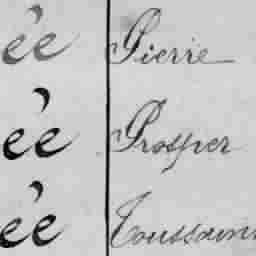 ée Pierre
ée Prosper
ée Toussain